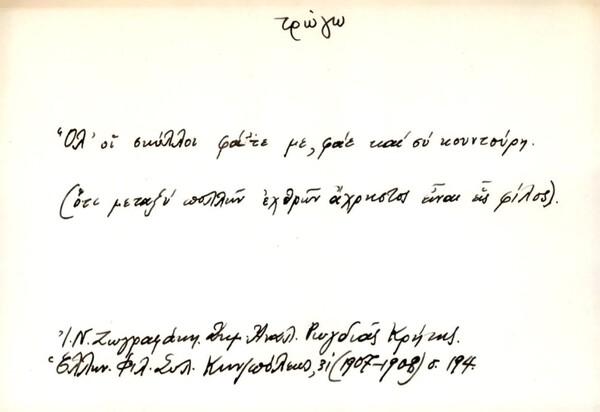 τρώγω
"Ὅλ' οἱ σκύλλοι φάτε με, φάε καί σύ κουντούρη.
(ὅτι μεταξύ πολλῶν ἐχθρῶν ἄχρηστος εἶναι εἷς φίλος).
Ἰ. Ν. Ζωγραφάκη. Δημ. Ἀνθολ. Ρωγδιᾶς Κρήτης.
Ἑλλην. Φιλ. Συλ. Κων/πόλεως, (1907-1908) σ. 194.